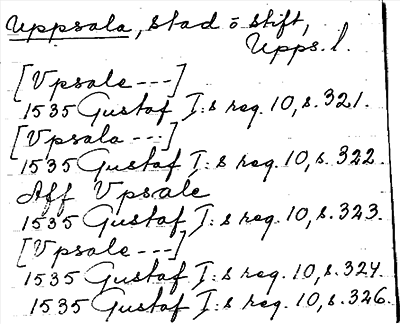 Uppsala, stad o stift,
Upps. l.
[Vpsale ---]
1535 Gustaf I:s reg. 10, s. 321.
[Vpsala ---]
1535 Gustaf I:s reg. 10, s. 322.
Aff Vpsale
1535 Gustaf I:s reg. 10, s. 323.
[Vpsale ---]
1535 Gustaf I:s reg. 10, s. 324.
1535 Gustaf I:s reg. 10, s. 326.